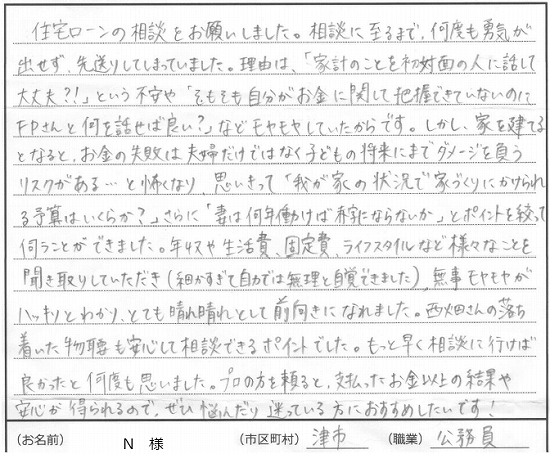 住宅ローンの相談をお願いしました。相談に至るまで、何度も勇気が
出せず、先送りしてしまっていました。理由は、「家計のことを初対面の人に話して
大丈夫?!」という不安や「そもそも自分がお金に関して把握できていないのに
FPさんと何を話せば良い?」などモヤモヤしていたからです。しかし、家を建てる
となると、お金の失敗は夫婦だけではなく子どもの将来にまでダメージを負う
リスクがある…と怖くなり、思いきって「我が家の状況で家づくりにかけられ
る予算はいくらか?」さらに「妻は何年働けば赤字にならないか」とポイントを絞って
伺うことができました。年収や生活費、固定費、ライフスタイルなど様々なことを
聞き取りしていただき(細かすぎて自力では無理と自覚できました)、無事モヤモヤが
ハッキリとわかり、とても晴れ晴れとして前向きになれました。西畑さんの落ち
着いた物腰も安心して相談できるポイントでした。もっと早く相談に行けば
良かったと何度も思いました。プロの方を頼ると、支払ったお金以上の結果や
安心が得られるので、ぜひ悩んだり迷っている方におすすめしたいです!
(お名前) N 様 (市区町村) 津市 (職業) 公務員